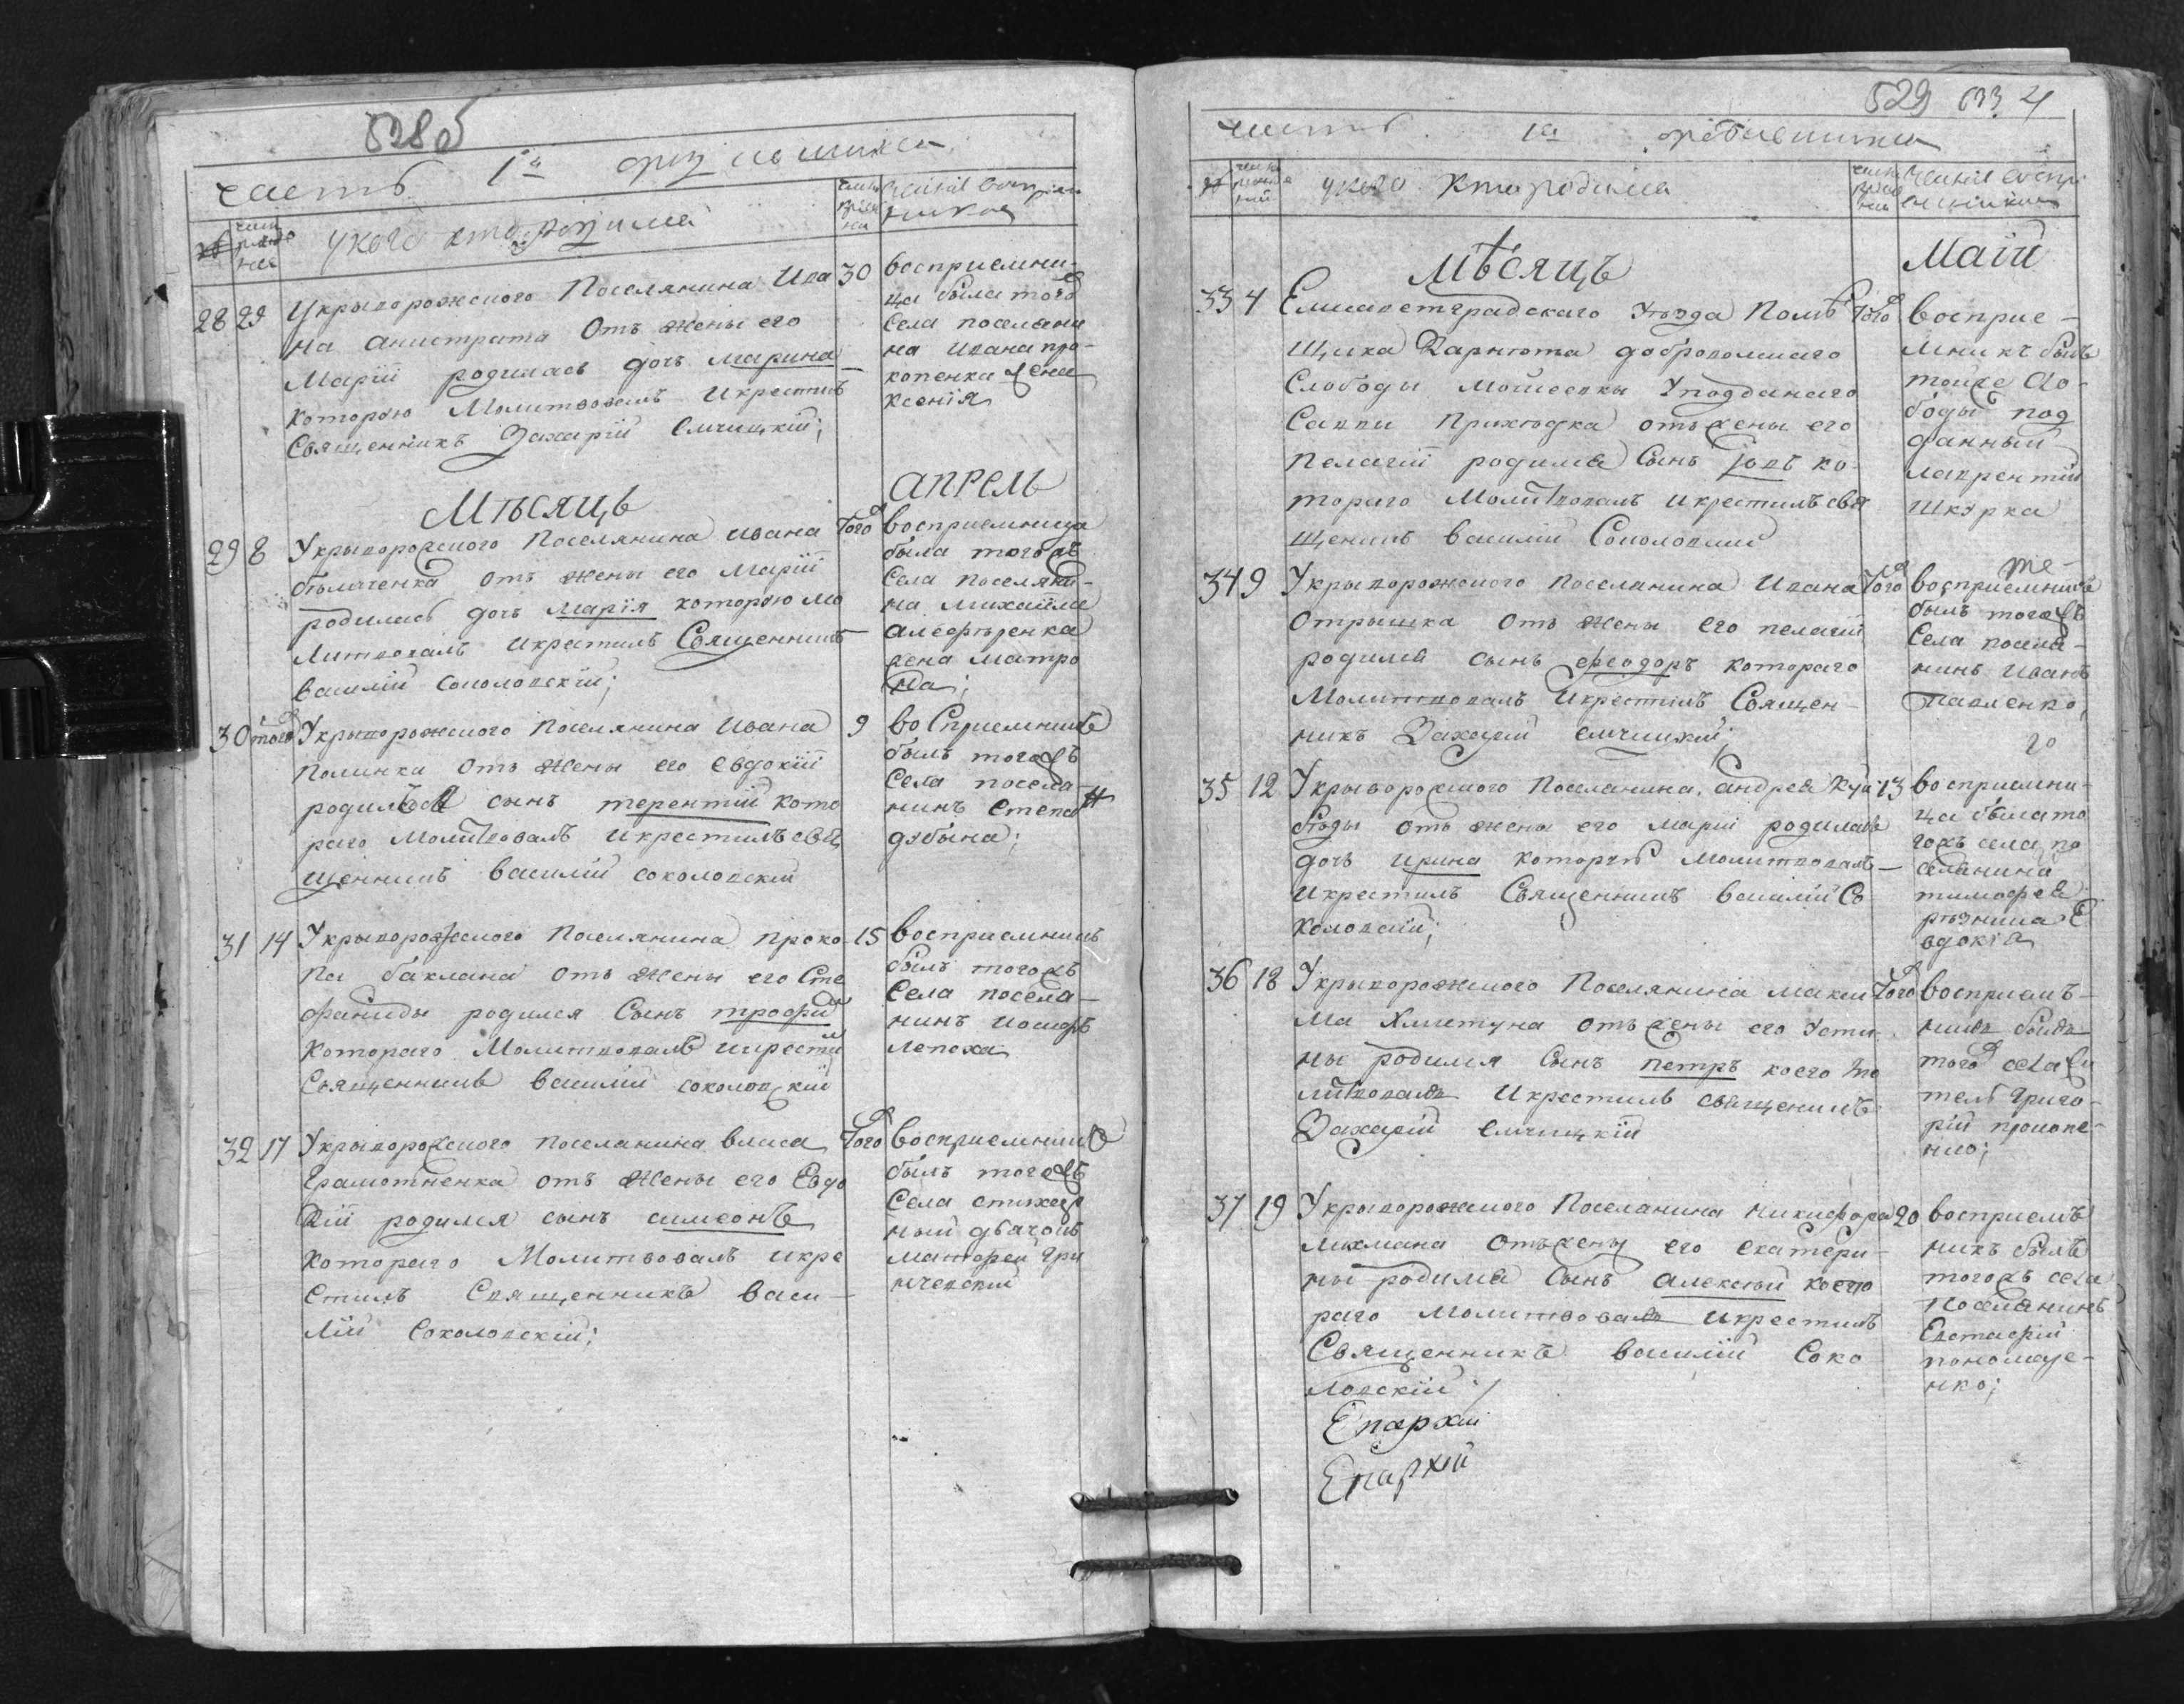 528 об
часть 1я о рождшихся
№ числа рожде нія
у кого кто родился
числа креще нія
чиніе воспріем никовъ
28 29 У крыворожского Поселянина Ива 30
на Анистрата Отъ жены его
Маріи родилась дочь Марина
которою Молитвовалъ и крестилъ
Священникъ Захарій Елчицкій;
восприемни-
ца была того ж
Села поселяни
на Ивана про-
копенка жена
Ксенія
Мѣсяцъ Апрель
29 8 У крыворожского Поселянина Ивана Того ж
отъ жены его Маріи
родилась дочь Марія которою мо
литвовалъ и крестилъ Священникъ
Василій Соколовскій;
восприемница
была того жъ
Села поселяни-
на Михаила
жена Матро
на;
30 того ж У крыворожского Поселянина Ивана 9
Полинки Отъ жены его Евдокіи
родился сынъ Терентій кото
раго Молитвовалъ и крестилъ свя
щенникъ Василій Соколовскій
восприемникъ
былъ того жъ
Села поселя-
нинъ Степан
дубына;
31 14 У крыворожского Поселянина Проко 15
па баклана отъ жены его Сте
фаниды родился Сынъ Трофим
котораго Молитвовалъ и крестил
Священникъ Василій Соколовскій
восприемникъ
былъ того жъ
Села поселя-
нинъ Иосифъ
лепеха
32 17 У крыворожского поселянина Власа Того ж
Грамотненка отъ жены его Евдо
кіи родился сынъ Симеонъ
котораго Молитвовалъ и кре
стилъ Священникъ Васи-
лій Соколовскій;
восприемникъ
былъ того жъ
Села стихар
ный дьячокъ
Матфей Гри
нчевскій
529 4
часть 1я о рождшихся
у кого кто родился
Мѣсяцъ Маій
33 4 Елисаветградскаго Уѣзда Помѣ Того ж
щика
Слободы Мойсеевки У подданаго
Саввы Приходка отъ жены его
Пелагіи родился Сынъ Іовъ ко-
тораго Молитвовалъ и крестилъ свя
щеникъ Василий Соколовский
восприе-
мникъ былъ
тойже сло-
боды под
данный
лаврентій
шкурка
34 9 У крыворожского поселянина Ивана Того ж
Отрышка Отъ жены его пелагіи
родился сынъ Феодоръ котораго
Молитвовалъ и крестилъ Священ-
никъ Захарій Елчицкій;
восприемникъ
былъ того жъ
Села поселя-
нинъ Иванъ
Павленко;
35 12 У крыворожского Поселянина Андрея 13
отъ жены его Маріи родилась
дочь Ирина которую Молитвовалъ-
и крестилъ Священникъ Василій Со
коловскій;
восприемни-
ца была то
гожъ села по
селянина
тимофея
рѣзника Е
вдокія
36 18 У крыворожского Поселянина Макси Того ж
ма Хлистуна отъ жены его Усти
ны родился Сынъ Петръ коего мо
литвовалъ и крестилъ священикъ
Захарій Елчицкій
восприемъ-
никъ былъ
того ж села жи
тель Григо-
рій прокопе-
нко;
37 19 У крыворожского Поселянина Никифора 20
лихмана отъ жены его Екатери-
ны родился Сынъ Алексѣй кото
раго молитвовалъ и крестилъ
Священникъ Василій Соко
ловскій;
восприемъ
никъ былъ
того жъ села
Поселянинъ
Евстафій
пономаре-
нко;
Епархіи
Епархій